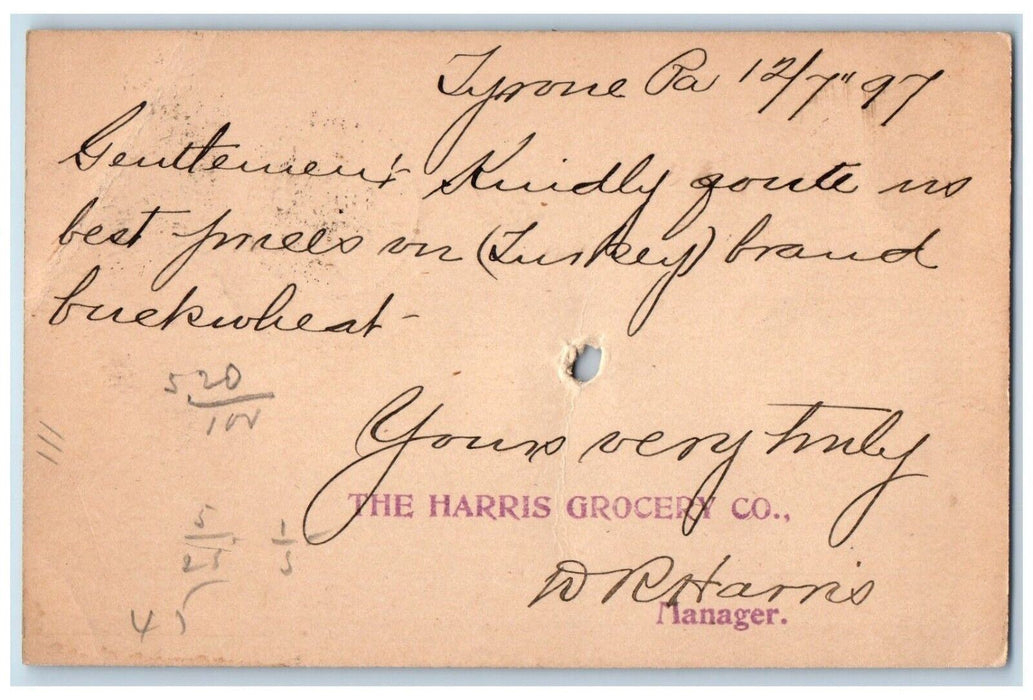 Tyrone Pa 12/7" 97
Gentlemen: Kindly qoute us
best prices on (Turkey) brand
buckwheat -
5.20
100
111
Yours very truly
THE HARRIS GROCERY CO.,
5
25
1
5
D R Harris
Manager.
45